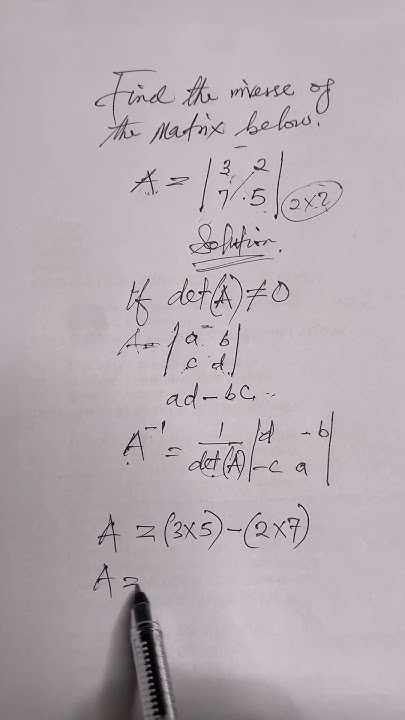 Find the inverse of
the matrix below.
A = | 3 2 |
| 7 5 | 2x2
Solution.
If det(A) ≠ 0
A = | a b |
| c d |
ad - bc
A⁻¹ = 1/det(A) | d -b |
| -c a |
A = (3x5) - (2x7)
A =